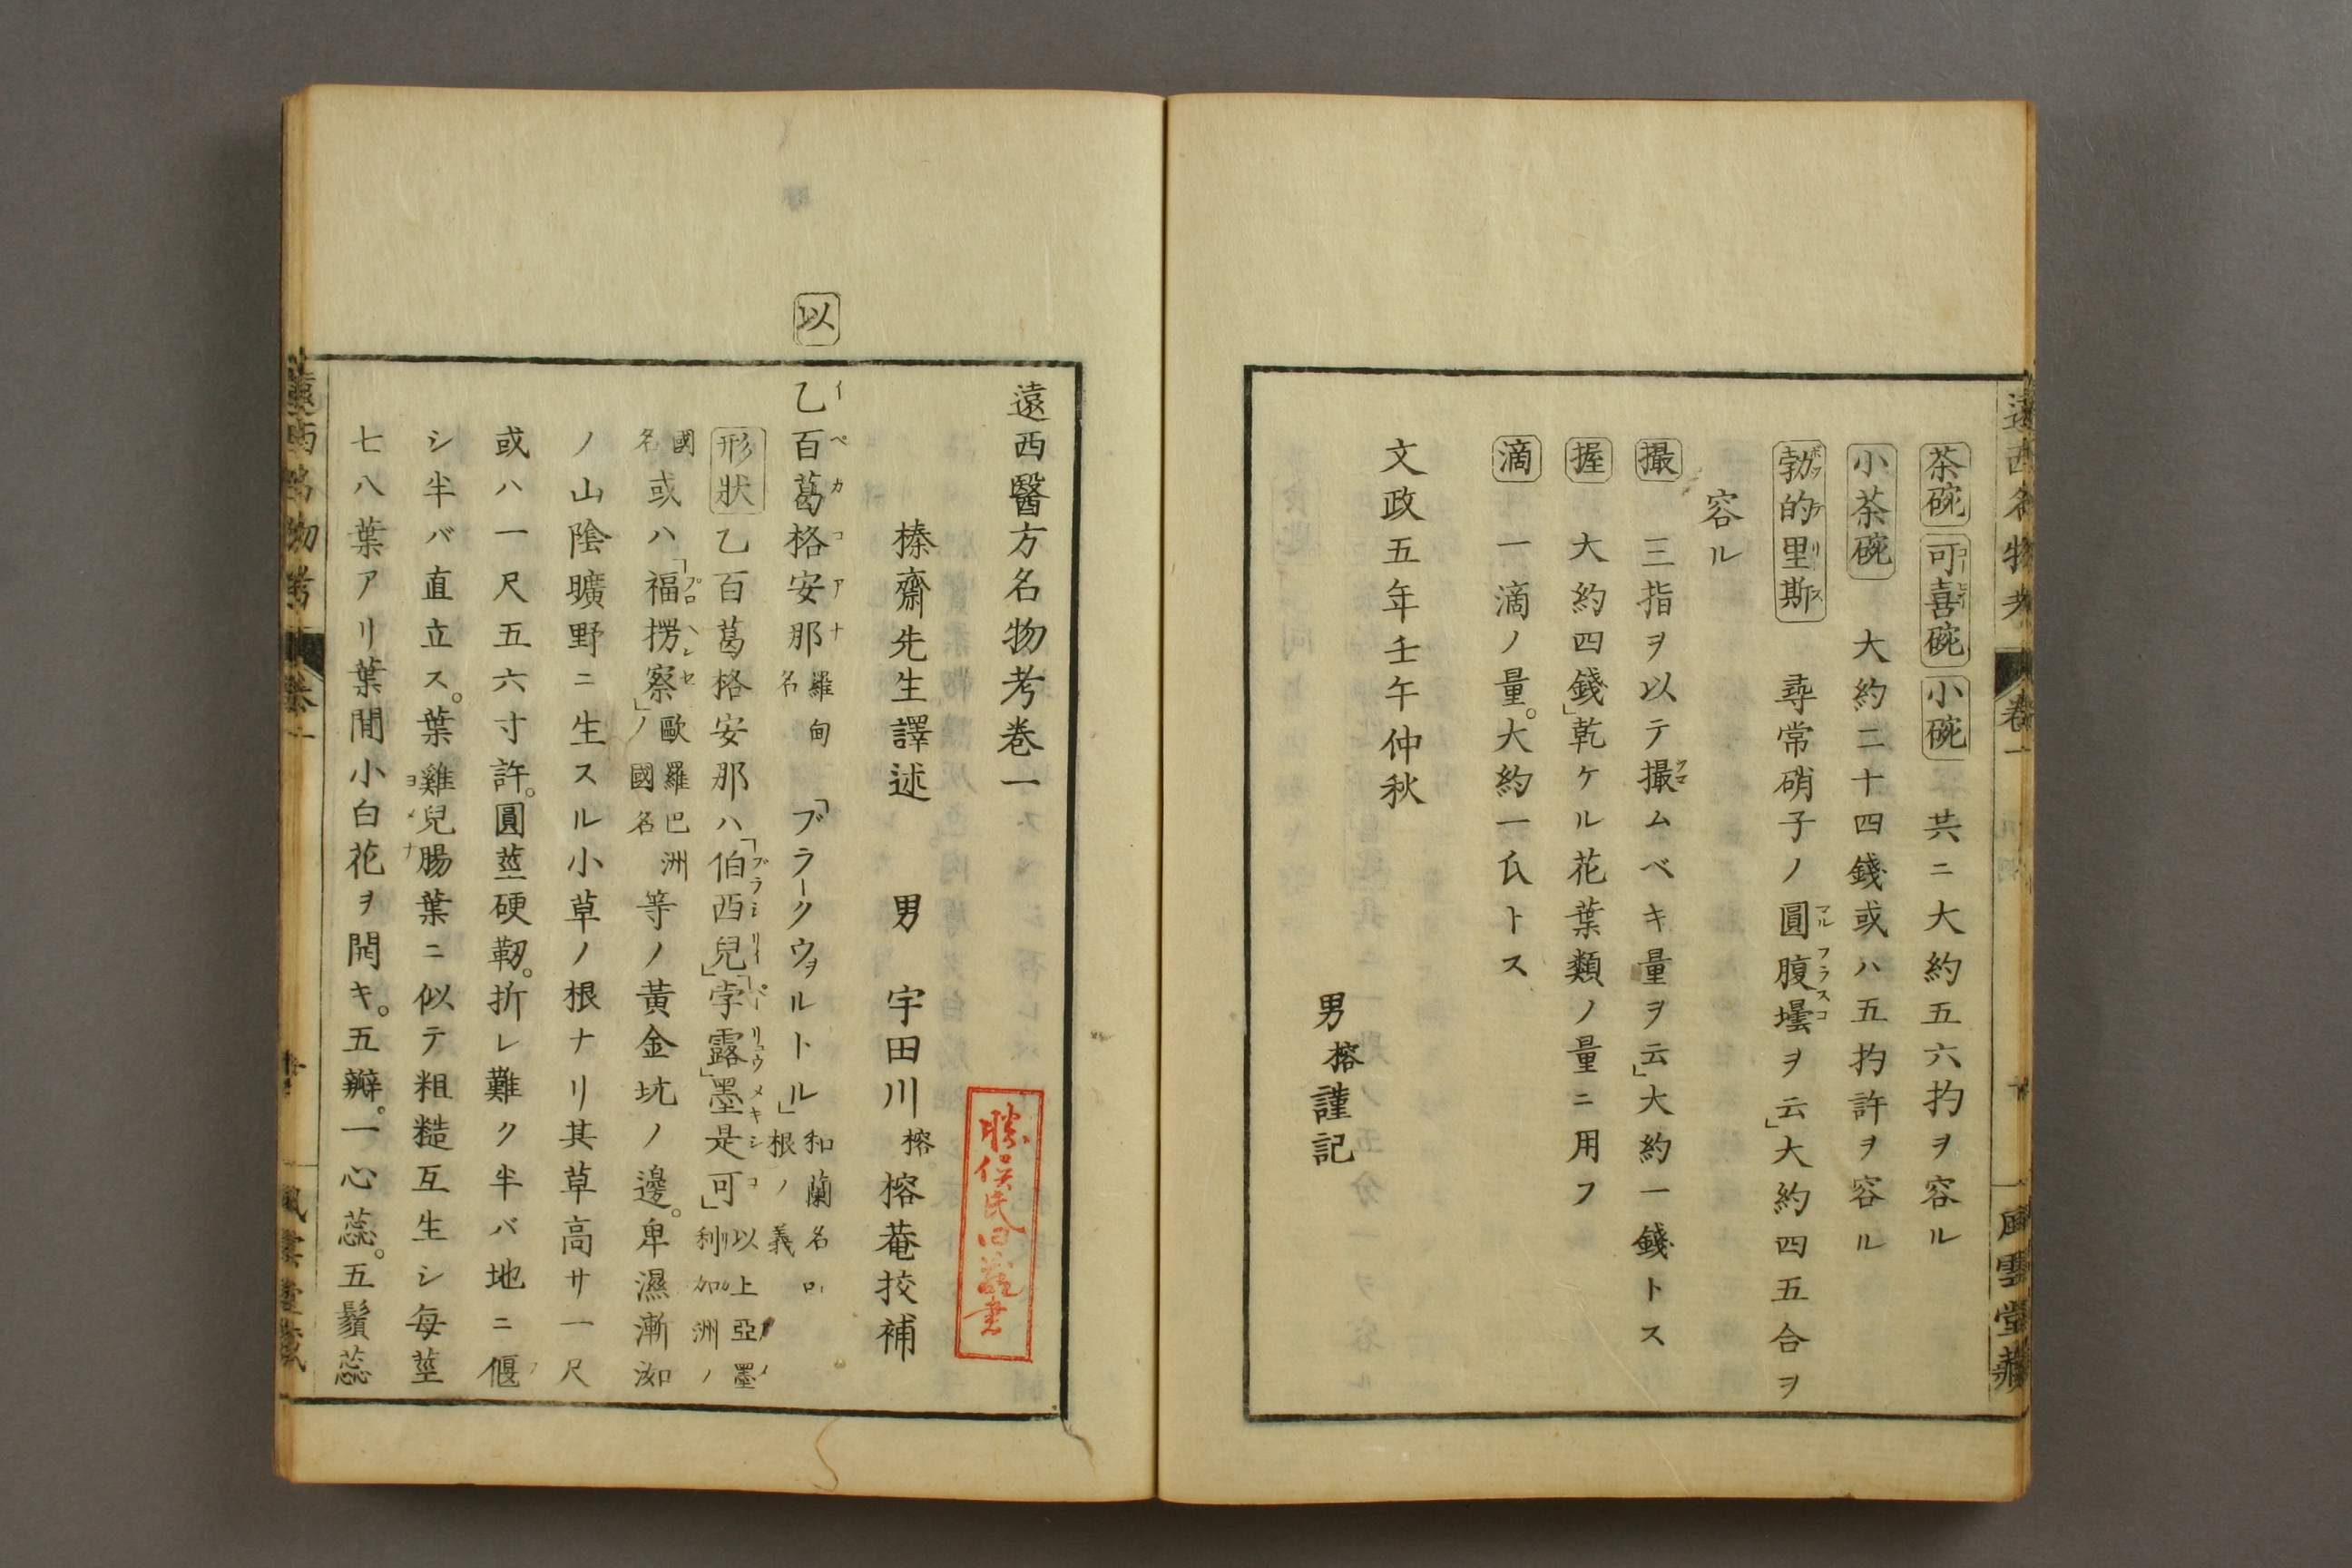 遠西名物考 卷一 風雲堂藏
茶碗 可喜碗 小碗 共ニ大約五六扚ヲ容ル
小茶碗 大約二十四錢或ハ五扚許ヲ容ル
勃的里斯 尋常硝子ノ圓腹壜ヲ云」大約四五合ヲ
容ル
撮 三指ヲ以テ撮ムベキ量ヲ云」大約一錢トス
握 大約四錢」乾ケル花葉類ノ量ニ用フ
滴 一滴ノ量。大約一氐トス
文政五年壬午仲秋
男榕謹記
遠西醫方名物考卷一
榛齋先生譯述 男 宇田川榕榕菴挍補
以
乙百葛格安那 羅甸名 「ブラークウヲルトル」 和蘭名ロ根ノ義
形狀 乙百葛格安那ハ「伯西兒」「孛露」墨是可」 以上亞墨利加洲ノ
國名 或ハ「福楞察」ノ 歐羅巴洲國名 等ノ黃金坑ノ邊。卑濕漸洳
ノ山陰曠野ニ生スル小草ノ根ナリ其草高サ一尺
或ハ一尺五六寸許。圓莖硬靱。折レ難ク半バ地ニ偃
シ半バ直立ス。葉雞兒腸葉ニ似テ粗糙互生シ每莖
七八葉アリ葉間小白花ヲ開キ。五瓣。一心蕊。五鬚蕊
遠西名物考 卷一 風雲堂藏